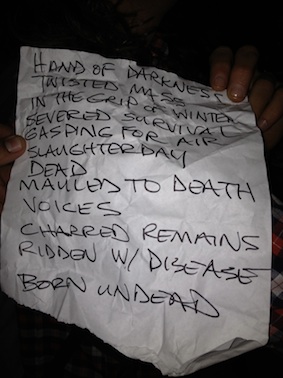 HAND OF DARKNESS
TWISTED MASS
IN THE GRIP OF WINTER
SEVERED SURVIVAL
GASPING FOR AIR
SLAUGHTERDAY
DEAD
MAULED TO DEATH
VOICES
CHARRED REMAINS
RIDDEN W/ DISEASE
BORN UNDEAD